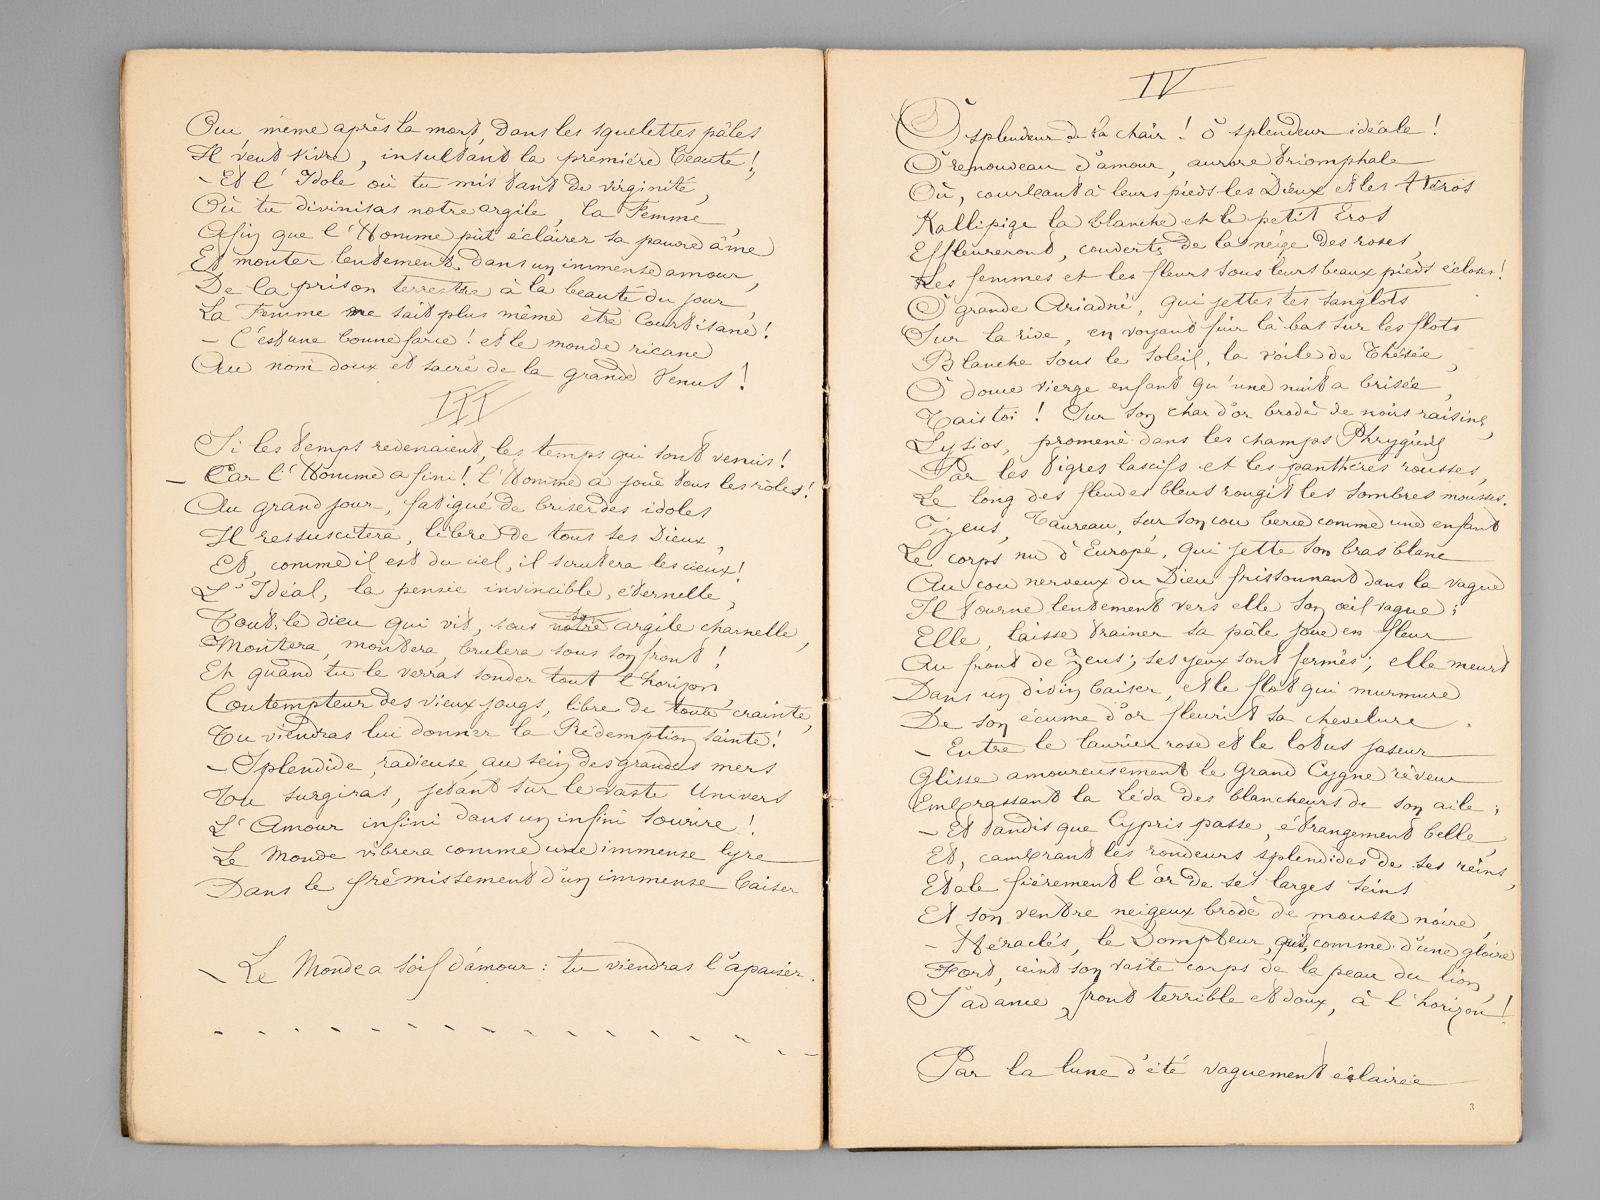 Oui même après la mort, dans les squelettes pâles
Il veut vivre, insultant la première beauté !
- Et l'Idole où tu mis tant de virginité,
Où tu divinisas notre argile, la Femme
Afin que l'Homme pût éclairer sa pauvre âme
Et monter lentement, dans un immense amour,
De la prison terrestre à la beauté du jour
La Femme ne sait plus même être Courtisane !
- C'est une bonne farce ! et le monde ricane
Au nom doux et sacré de la grande Vénus !
III
Si les temps revenaient, les temps qui sont venus !
- Car l'Homme a fini ! l'Homme a joué tous les rôles !
Au grand jour, fatigué de briser des idoles
Il ressuscitera, libre de tous ses Dieux,
Et, comme il est du ciel, il scrutera les cieux !
L'Idéal, la pensée invincible, éternelle,
Tout le dieu qui vit, sous notre argile charnelle,
Montera, montera, brulera sous son front !
Et quand tu le verras sonder tout l'horizon,
Contempteur des vieux jougs, libre de toute crainte,
Tu viendras lui donner la Rédemption sainte !
- Splendide, radieuse, au sein des grandes mers
Tu surgiras, jetant sur le vaste Univers
L'Amour infini dans un infini sourire !
Le Monde vibrera comme une immense lyre
Dans le frémissement d'un immense baiser
- Le Monde a soif d'amour : tu viendras l'apaiser.
- - - - - - - - - - - - - - - - -
IV
Ô splendeur de la chair ! ô splendeur idéale !
Ô renouveau d'amour, aurore triomphale
Où, courbant à leurs pieds les Dieux et les Héros
Kallipige la blanche et le petit Éros
Effleureront, couverts de la neige des roses,
Les femmes et les fleurs sous leurs beaux pieds écloses !
Ô grande Ariadné, qui jettes tes sanglots
Sur la rive, en voyant fuir là-bas sur les flots
Blanche sous le soleil, la voile de Thésée,
Ô douce vierge enfant qu'une nuit a brisée,
Tais toi ! Sur son char d'or brodé de noirs raisins,
Lysios, promené dans les champs Phrygiens
Par les tigres lascifs et les panthères rousses,
Le long des fleuves bleus rougit les sombres mousses.
Zeus, Taureau, sur son cou berce comme une enfant
Le corps nu d'Europé, qui jette son bras blanc
Au cou nerveux du Dieu frissonnant dans la vague
Il tourne lentement vers elle son œil vague ;
Elle, laisse trainer sa pâle joue en fleur
Au front de Zeus ; ses yeux sont fermés ; elle meurt
Dans un divin baiser, et le flot qui murmure
De son écume d'or fleurit sa chevelure.
- Entre le laurier rose et le lotus jaseur
Glisse amoureusement le grand Cygne rêveur
Embrassant la Léda des blancheurs de son aile ;
- Et tandis que Cypris passe, étrangement belle,
Et, cambrant les rondeurs splendides de ses reins,
Etale fièrement l'or de ses larges seins
Et son ventre neigeux brodé de mousse noire,
- Héraclès, le Dompteur, qui, comme d'une gloire
Fort, ceint son vaste corps de la peau du lion,
S'avance, front terrible et doux, à l'horizon !
Par la lune d'été vaguement éclairée
3